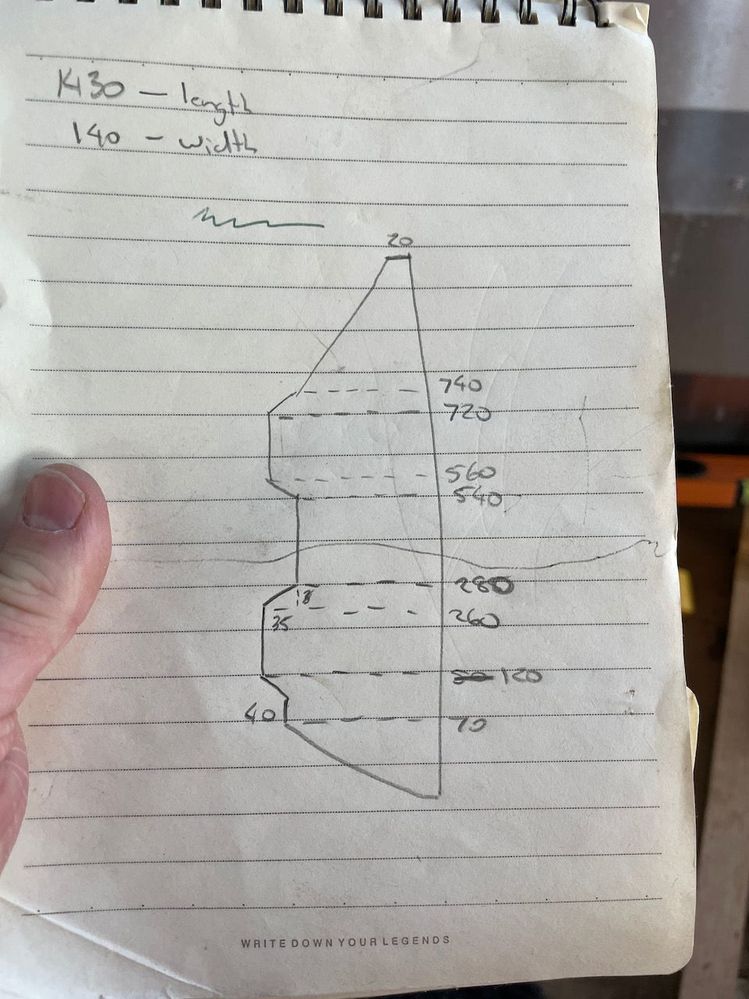 1430 - length
140 - width
20
740
720
560
540
280
260
35
120
40
70
WRITE DOWN YOUR LEGENDS